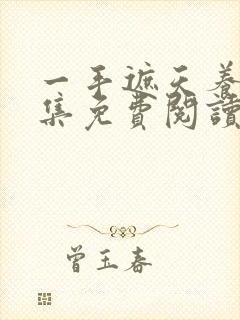 一手遮天养
集免費閱讀
曾玉春